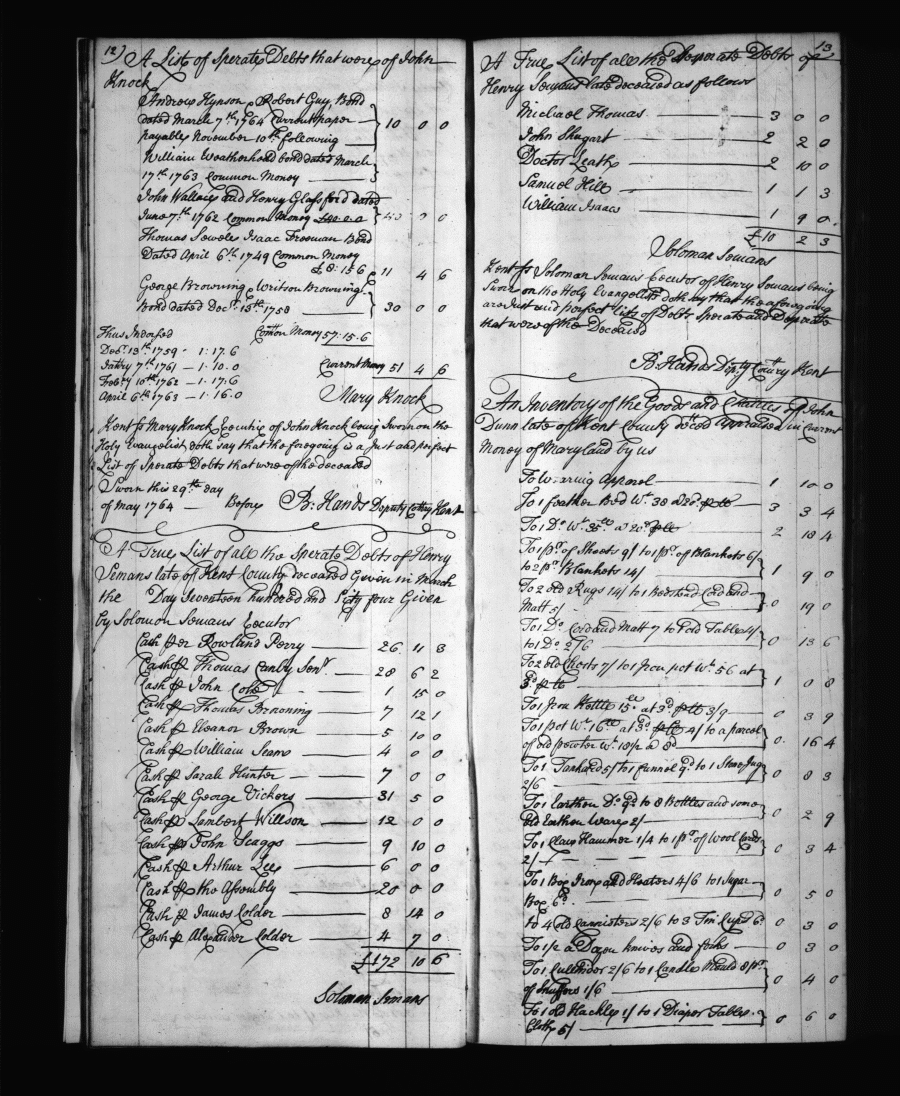 12)
A List of Sperate Debts that were of John
Knock
Andrew Hynson Robert Guy, Bond
dated March 7th 1764 Current paper
payable November 10th following } 10 0 0
William Weatherhead bond dated March
17th 1763 Common Money
John Wallace and Henry Glassford dated
June 7th 1762 Common Money £40.0.0 } 40 0 0
Thomas Sewele Isaac Freeman Bond
Dated April 6th 1749 Common Money
£8:15 6 } 11 4 6
George Browning Writson Browning
Bond dated Decr 13th 1758 } 30 0 0
Thus Indorsed Common Money 57:15.6
Decr 13th 1759 - 1:17.6
Janry 7th 1761 - 1.10.0 Current Money 51 4 6
Febry 10th 1762 - 1.17.6
April 6th 1763 - 1.16.0 Mary Knock
Kent ss Mary Knock Executrix of John Knock being Sworn on the
Holy Evangelist doth say that the foregoing is a Just and perfect
List of Sperate Debts that were of the deceased
Sworn this 29th day
of May 1764 — Before B. Hands Deputy Comry Kent
A True List of all the Sperate Debts of Henry
Semans late of Kent County deceased Given in March
the Day Seventeen hundred and Sixty four Given
by Solomon Semans Executor
Cash ⅌r Rowland Perry 26 11 3
Cash ⅌ Thomas Canby Senr 28 6 2
Cash ⅌ John 1 15 0
Cash ⅌ Thomas Browning 7 12 1
Cash ⅌ Eleanor Brown 5 10 0
Cash ⅌ William Seams 4 0 0
Cash ⅌ Sarah Hunter 7 0 0
Cash ⅌ George Vickers 31 5 0
Cash ⅌ Lambert Willson 12 0 0
Cash ⅌ John Scaggs 9 10 0
Cash ⅌ Arthur Lee 6 0 0
Cash ⅌ the Assembly 20 0 0
Cash ⅌ James Colder 8 14 0
Cash ⅌ Alexander Colder 4 7 0
£172 10 6
Soloman Semans
13
A True List of all the Desperate Debts of
Henry Semans late deceased as follows
Michael Thomas 3 0 0
John Shugart 2 2 0
Doctor Leath 2 10 0
Samuel Hill 1 1 3
William Isaacs 1 9 0
£10 2 3
Soloman Semans
Kent ss Soloman Semans Executor of Henry Semans being
Sworn on the Holy Evangelist doth say that the aforegoing
are Just and perfect lists of Debts Sperate and Desperate
that were of the Deceased
B. Hands Dipty Comry Kent
An Inventory of the Goods and Chattles of John
Dunn late of Kent County deced Appraised in Current
Money of Maryland by us
To Wearing Apparel 1 10 0
To 1 feather Bed Wt. 38 a 20d ⅌ lb 3 3 4
To 1 Do Wt. a 20d ⅌ lb 2 18 4
To 1 pr. of Sheets 9/ to 1 pr. of Blankets 6/
to 2 pr. Blankets 14/ } 1 9 0
To 2 old Rugs 14/ to 1 Bedstead Cord and
Matt 5/ } 0 19 0
To 1 Do Cord and Matt 7 to 1 old Table 4/
to 1 Do 2/6 } 0 13 6
To 2 old Chests 7/ to 1 Iron pot Wt. 56 at
3d ⅌ lb } 1 0 8
To 1 Iron Kettle 15 at 3d ⅌ lb 3/9 0 3 9
To 1 pot Wt. 16 at 3d ⅌ lb 4/ to a parcel
of old pewter Wt. 18½ a 8d } 0 16 4
To 1 Tankard 5/ to 1 funnel 9d to 1 Stone Jugg
2/6 } 0 8 3
To 1 Earthen Do 9d to 8 Bottles and some
old Earthen Ware 2/ } 0 2 9
To 1 Claw Hammer 1/4 to 1 pr of Wool Cards
2/ } 0 3 4
To 1 Box Iron and Heaters 4/6 to 1 Sugar
Box 6d } 0 5 0
to 4 old Cannisters 2/6 to 3 Tin Cups 6d 0 3 0
To 1/2 a Dozen knives and forks 0 3 0
To 1 Cullinder 2/6 to 1 Candle Mould & pr.
of Snuffers 1/6 } 0 4 0
To 1 old Hackle 1/ to 1 Diaper Table
Cloth 5/ } 0 6 0